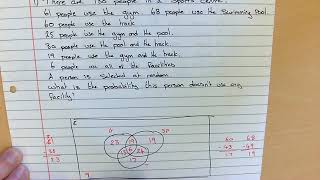 1) There are 150 people in a Sports Centre.
61 people use the gym. 68 people use the Swimming Pool.
60 people use the track.
25 people use the gym and the pool.
30 people use the pool and the track.
19 people use the gym and the track.
6 people use all of the facilities
A person is selected at random
what is the probability this person doesn't use any
facility?
G SP
23 19 19
13 6 24
17
9
61
38
23
60 68
-43 -49
17 19